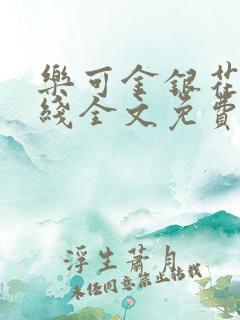 樂可金銀花
綫全文免費
浮生蕭月
未经同意禁止转载